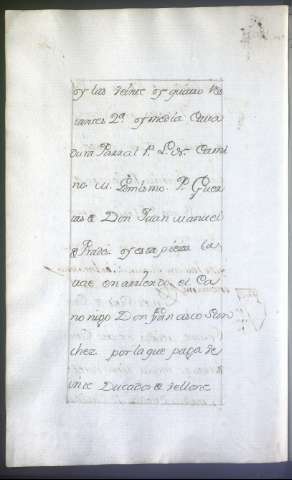 y las veinte y quatro Res
tantes 2ª y media Cava
dura Parral P. L. N. Cami
no M. Lo mismo P. Guer
tas de Don Juan Manuel
de Prado y esta pieza la
trae en arriendo el Ca
nonigo Don Francisco San
chez por la que paga Ve
inte Ducados de Vellon